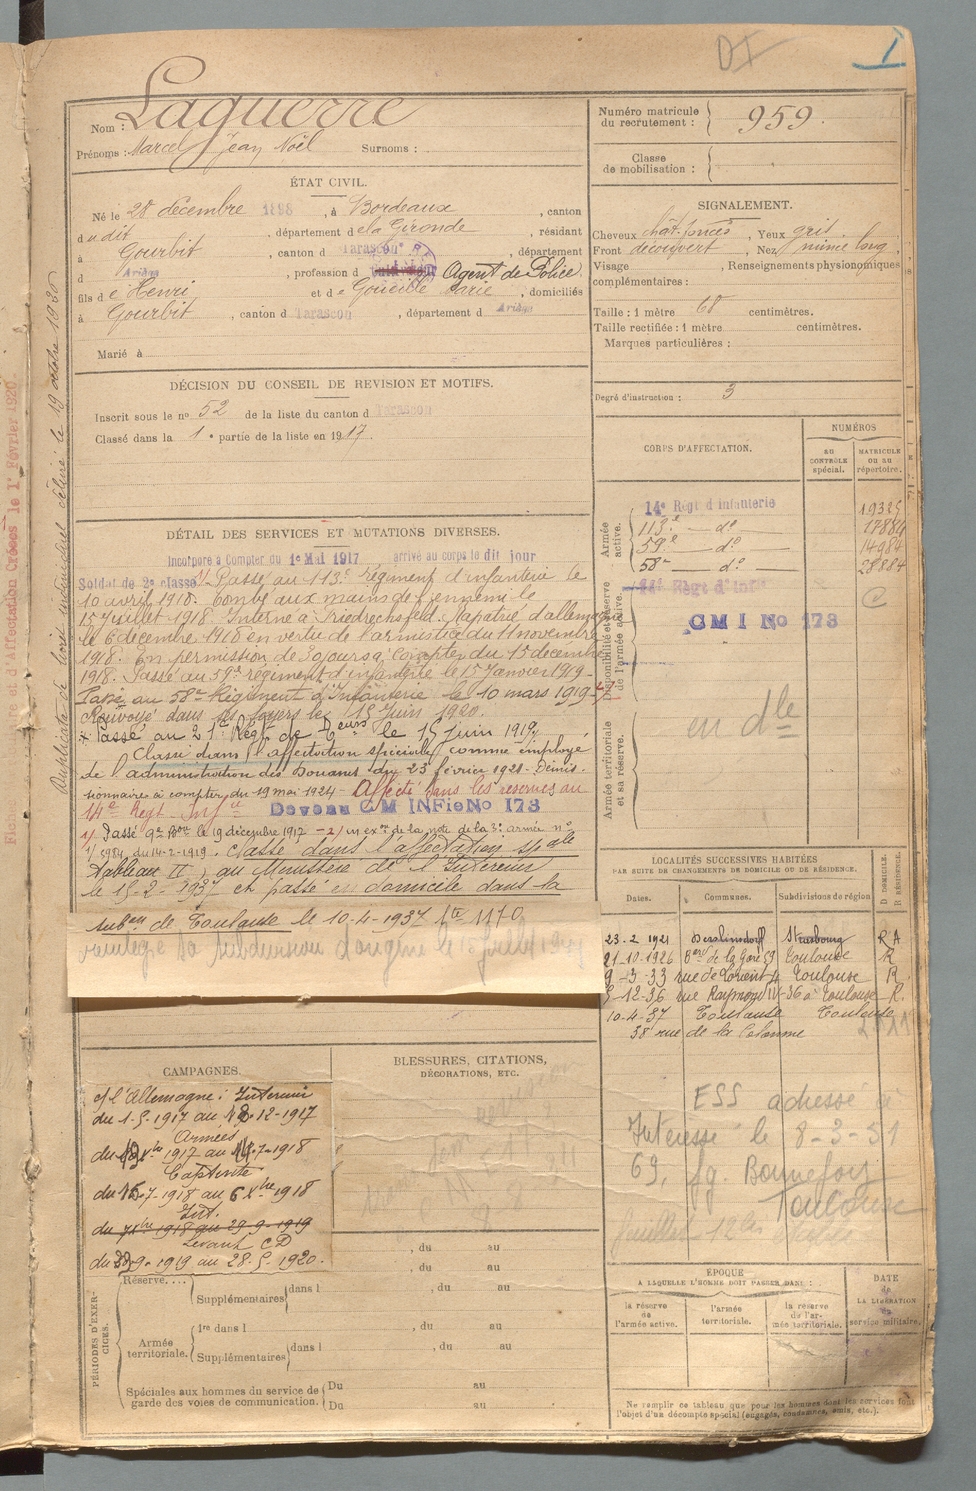 DI
1
Nom : Laguerre
Prénoms : Marcel Jean Noël Surnoms :
Numéro matricule du recrutement : 959.
Classe de mobilisation :
ÉTAT CIVIL.
Né le 28 décembre 1898, à Bordeaux, canton
dudit, département de la Gironde, résidant
à Gourbit, canton d Tarascon, département
d Ariège, profession d Agent de Police
fils de Henri et de Marie, domiciliés
à Gourbit, canton d Tarascon, département d Ariège
Marié à
SIGNALEMENT.
Cheveux chât. foncés, Yeux gris.
Front découvert, Nez mince long,
Visage , Renseignements physionomiques
complémentaires :
Taille : 1 mètre 68 centimètres.
Taille rectifiée : 1 mètre centimètres.
Marques particulières :
Degré d'instruction : 3
DÉCISION DU CONSEIL DE REVISION ET MOTIFS.
Inscrit sous le no 52 de la liste du canton d Tarascon
Classé dans la 1e partie de la liste en 1917.
CORPS D'AFFECTATION.
NUMÉROS
AU CONTRÔLE spécial.
MATRICULE OU AU répertoire.
Armée active.
14e Régt d'infanterie 19325
113e — do — 17884
59e — do — 14984
58e — do — 28884
Disponibilité et réserve de l'armée active.
14e Régt d'Inf
C
CMI No 173
Armée territoriale et sa réserve.
en dle
DÉTAIL DES SERVICES ET MUTATIONS DIVERSES.
Incorporé à Compter du 1er Mai 1917 arrivé au corps le dit jour
Soldat de 2e classe 1/ Passé au 113e régiment d'infanterie le
10 avril 1918. Tombé aux mains de l'ennemi le
15 Juillet 1918 Interné à Friedrechsfeld. Rapatrié d'allemagne
le 6 décembre 1918 en vertu de l'armistice du 11 novembre
1918. En permission de 30 jours à compter du 15 décembre
1918. Passé au 59e régiment d'infanterie le 15 Janvier 1919 -
Passé au 58e Régiment d'Infanterie le 10 mars 1919 2/
Renvoyé dans ses foyers le 15 Juin 1920.
x Passé au 21e Régt de le 15 juin 1919,
Classé dans l'affectation spéciale comme employé
de l'administration des Douanes du 23 février 1921 - Démis-
sionnaire à compter du 19 mai 1924 - Affecté dans les réserves au
14e Régt Infie Devenu CM INFie No 173
1/ Passé 9e Bon le 19 décembre 1917 - 2/ en exon de la note de la 3e armée no
1/5984 du 14-2-1919. Classé dans l'affectation spale
Tableau II, au Ministère de l'Intérieur
le 15-2-1937 et passé en domicile dans la
subon de Toulouse le 10-4-1937 1170
sa subdivision d'origine le 15 juillet
Ampliata de livret individuel délivré le 19 octobre 1936
d'Affectation Créées le 1er Février 1920.
LOCALITÉS SUCCESSIVES HABITÉES
PAR SUITE DE CHANGEMENTS DE DOMICILE OU DE RÉSIDENCE.
Dates. Communes. Subdivisions de région D DOMICILE. R RÉSIDENCE.
23-2 1921 Strasbourg R A
21-10-1926 de la Gare 59 Toulouse R
9-3-33 rue de Lorient 4 Toulouse R.
5-12-36 rue Raymond IV-36 à Toulouse R.
10-4-37 Toulouse Toulouse
38 rue de la Colonne
ESS adressé à
Intéressé le 8-3-51
69, fg. Bonnefoy
Toulouse
CAMPAGNES.
c/ l'Allemagne : Intérieur
du 1-5-1917 au 18-12-1917
Armées
du 1917 au 14-7-1918
Captivité
du 15-7-1918 au 6 Xbre 1918
Int.
du 7 Xbre 1918 au 29-9-1919
Levant CD
du 9-1919 au 28-5-1920.
BLESSURES, CITATIONS,
DÉCORATIONS, ETC.
PÉRIODES D'EXERCICES.
Réserve.... , du au
Supplémentaires dans l , du au
Armée territoriale.
1re dans l , du au
Supplémentaires dans l , du au
Spéciales aux hommes du service de garde des voies de communication.
Du au
Du au
ÉPOQUE
A LAQUELLE L'HOMME DOIT PASSER DANS :
DATE de LA LIBÉRATION du service militaire.
la réserve de l'armée active.
l'armée territoriale.
la réserve de l'armée territoriale.
Ne remplir ce tableau que pour les hommes dont les services font
l'objet d'un décompte spécial (engagés, condamnés, omis, etc.).